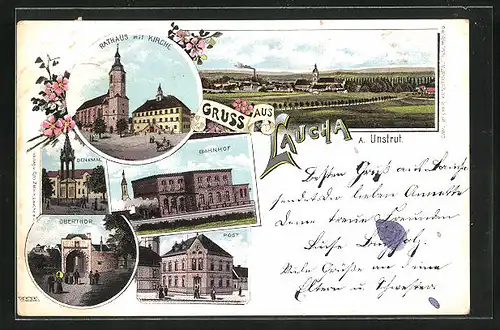 RATHAUS MIT KIRCHE
GRUSS AUS
LAUCHA
A. Unstrut.
DENKMAL
BAHNHOF
OBERTHOR
POST
Besten Gruß aus Laucha
sendet der lieben Annette
Deine treue Freundin
Luise
Viele Grüße an deine
Eltern u. Schwester.